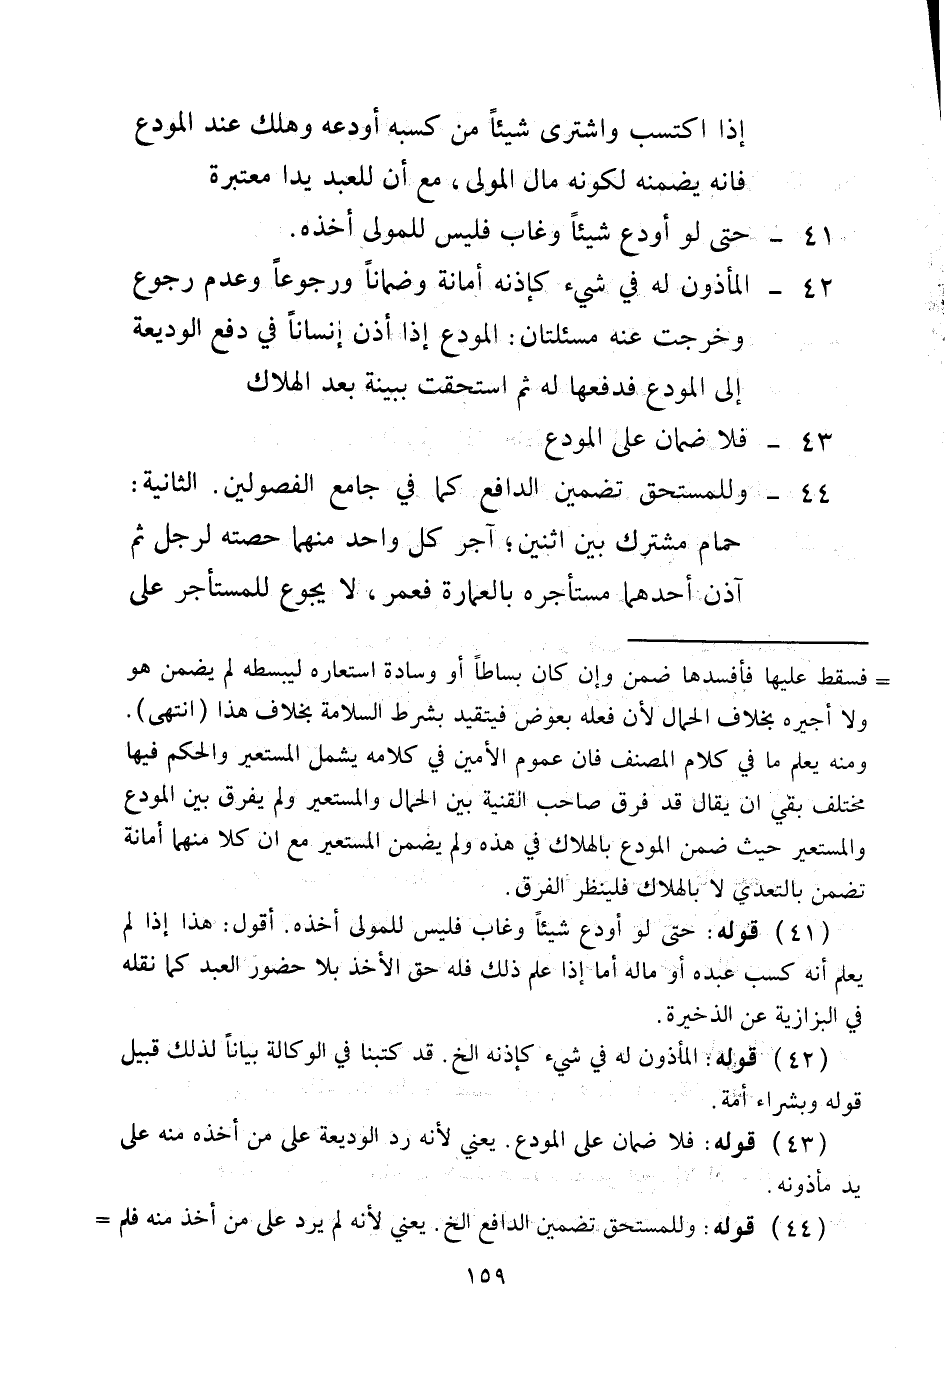 إذا اكتسب واشترى شيئاً من كسبه أودعه وهلك عند المودع
فانه يضمنه لكونه مال المولى، مع أن للعبد يدا معتبرة
٤١ - حتى لو أودع شيئاً وغاب فليس للمولى أخذه.
٤٢ - المأذون له في شيء كإذنه أمانة وضماناً ورجوعاً وعدم رجوع
وخرجت عنه مسئلتان: المودع إذا أذن إنساناً في دفع الوديعة
إلى المودع فدفعها له ثم استحقت ببينة بعد الهلاك
٤٣ - فلا ضمان على المودع
٤٤ - وللمستحق تضمين الدافع كما في جامع الفصولين. الثانية:
حمام مشترك بين اثنين؛ آجر كل واحد منهما حصته لرجل ثم
آذن أحدهما مستأجره بالعمارة فعمر، لا يجوع للمستأجر على
= فسقط عليها فأفسدها ضمن وإن كان بساطاً أو وسادة استعاره ليبسطه لم يضمن هو
ولا أجيره بخلاف الحمال لأن فعله بعوض فيتقيد بشرط السلامة بخلاف هذا (انتهى).
ومنه يعلم ما في كلام المصنف فان عموم الأمين في كلامه يشمل المستعير والحكم فيها
مختلف بقي ان يقال قد فرق صاحب القنية بين الحمال والمستعير ولم يفرق بين المودع
والمستعير حيث ضمن المودع بالهلاك في هذه ولم يضمن المستعير مع ان كلا منهما أمانة
تضمن بالتعدي لا بالهلاك فلينظر الفرق.
(٤١) قوله: حتى لو أودع شيئاً وغاب فليس للمولى أخذه. أقول: هذا إذا لم
يعلم أنه كسب عبده أو ماله أما إذا علم ذلك فله حق الأخذ بلا حضور العبد كما نقله
في البزازية عن الذخيرة.
(٤٢) قوله: المأذون له في شيء كإذنه الخ. قد كتبنا في الوكالة بياناً لذلك قبيل
قوله وبشراء أمة.
(٤٣) قوله: فلا ضمان على المودع. يعني لأنه رد الوديعة على من أخذه منه على
يد مأذونه.
(٤٤) قوله: وللمستحق تضمين الدافع الخ. يعني لأنه لم يرد على من أخذ منه فلم =
١٥٩